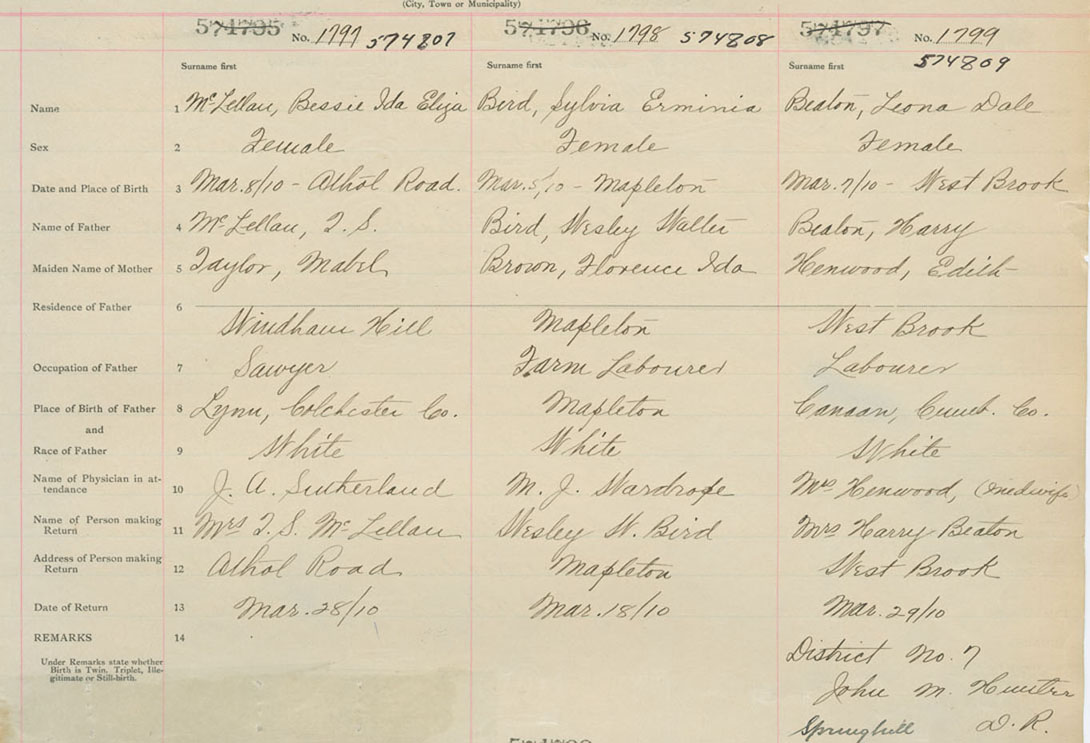 (City, Town or Municipality)
574795 No. 1797 574807 574796 No. 1798 574808 574797 No. 1799
574809
Surname first Surname first Surname first
Name 1 McLellan, Bessie Ida Eliza Bird, Sylvia Erminia Beaton, Leona Dale
Sex 2 Female Female Female
Date and Place of Birth 3 Mar. 8/10 - Athol Road. Mar. 5/10 - Mapleton Mar. 7/10 - West Brook
Name of Father 4 McLellan, T. S. Bird, Wesley Walter Beaton, Harry
Maiden Name of Mother 5 Taylor, Mabel Brown, Florence Ida Henwood, Edith
Residence of Father 6 Windham Hill Mapleton West Brook
Occupation of Father 7 Sawyer Farm Labourer Labourer
Place of Birth of Father 8 Lynn, Colchester Co. Mapleton Canaan, Cumb. Co.
and
Race of Father 9 White White White
Name of Physician in at-
tendance 10 J. A. Sutherland M. J. Wardrope Mrs Henwood, (midwife)
Name of Person making
Return 11 Mrs T. S. McLellan Wesley W. Bird Mrs Harry Beaton
Address of Person making
Return 12 Athol Road Mapleton West Brook
Date of Return 13 Mar. 28/10 Mar. 18/10 Mar. 29/10
REMARKS 14
Under Remarks state whether
Birth is Twin, Triplet, Ille-
gitimate or Still-birth.
District No. 7
John M. Hunter
Springhill D. R.